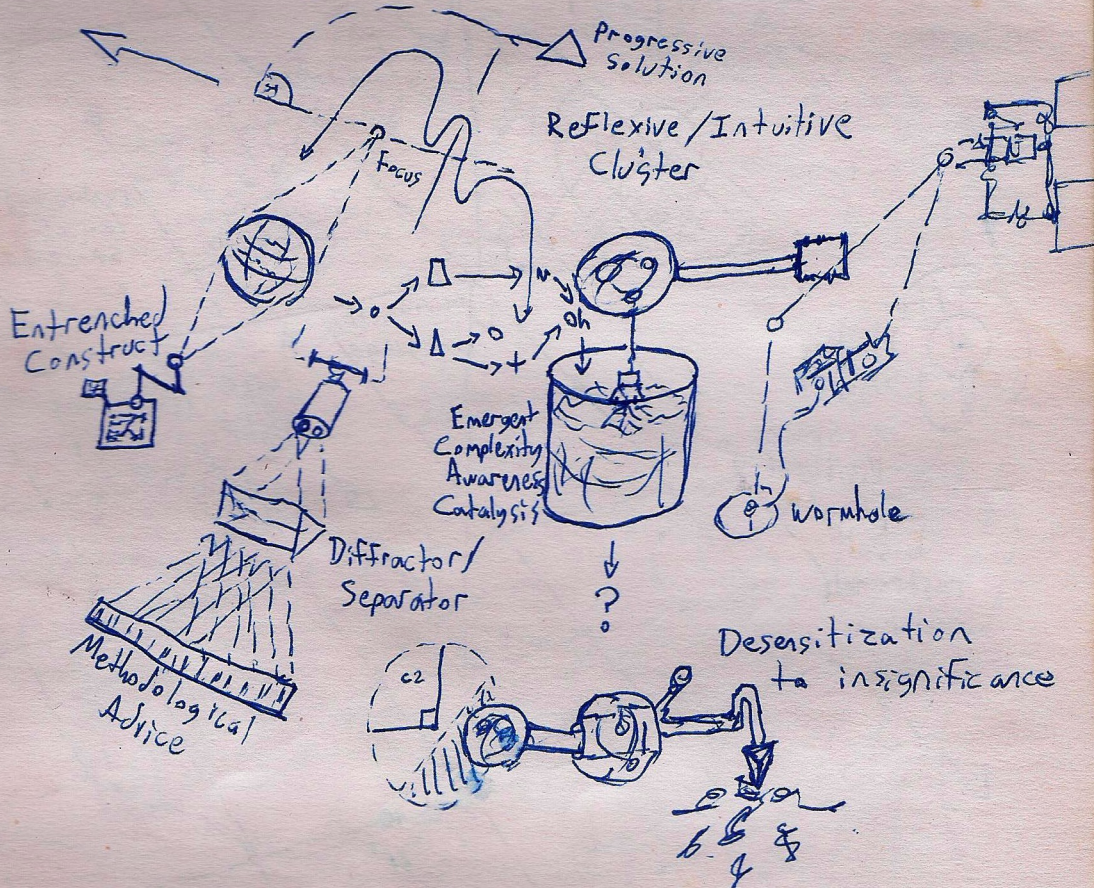 Progressive
Solution
Reflexive/Intuitive
Cluster
Focus
Entrenched
Construct
oh
Emergent
Complexity
Awareness
Catalysis
wormhole
Diffractor/
Separator
?
Methodological
Advice
Desensitization
to insignificance